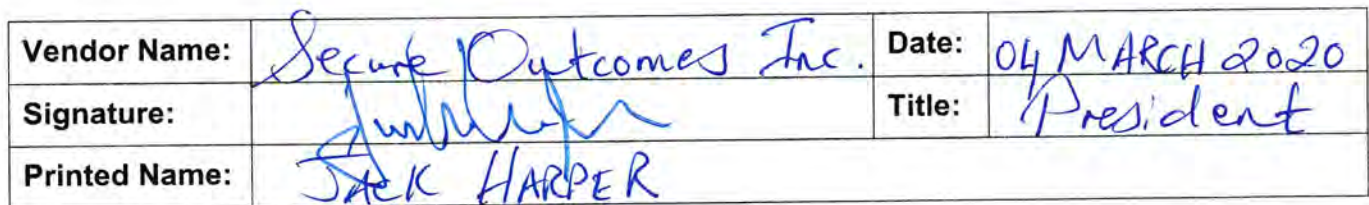 Vendor Name: Secure Outcomes Inc. Date: 04 MARCH 2020
Signature: Title: President
Printed Name: JACK HARPER